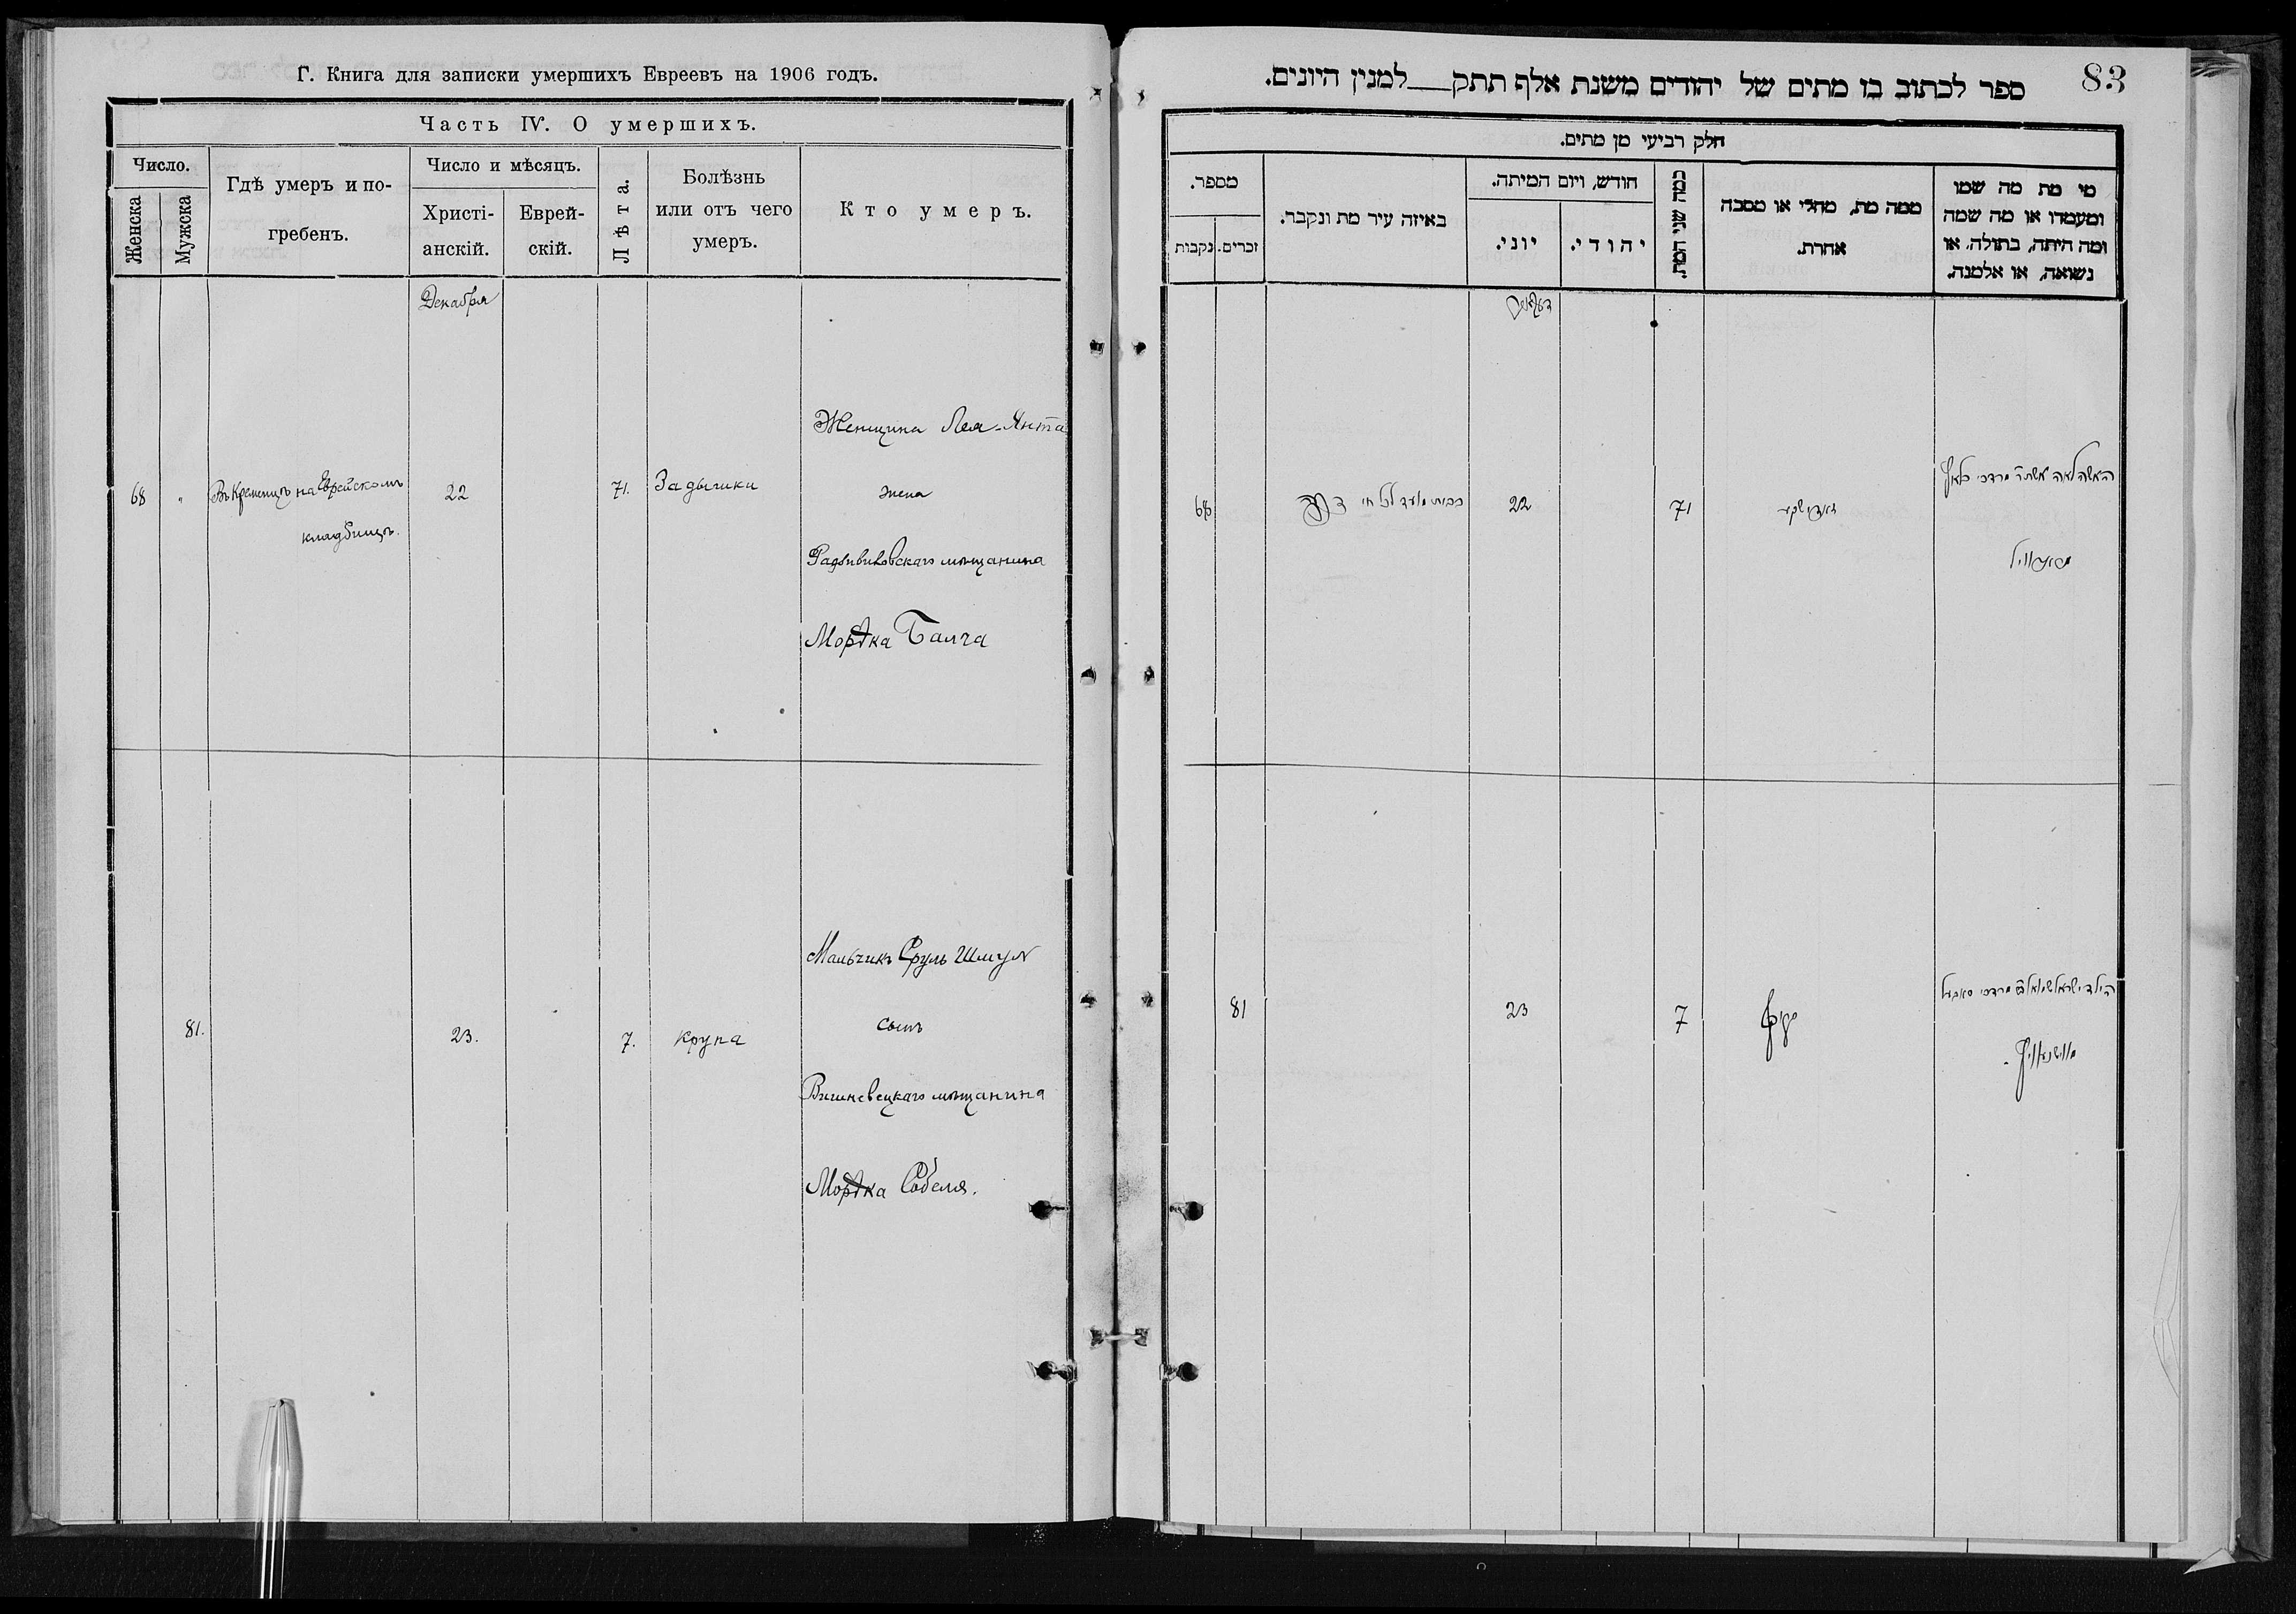 Г. Книга для записки умершихъ Евреевъ на 1906 годъ.
Часть IV. О умершихъ.
Число.
Женска
Мужска
Гдѣ умеръ и по-
гребенъ.
Число и мѣсяцъ.
Христі-
анскій.
Еврей-
скій.
Лѣта.
Болѣзнь
или отъ чего
умеръ.
Кто умеръ.
Декабря
68
"
Въ Кременцѣ на Еврейскомъ
кладбищѣ.
22
71.
Задышки
Женщина Лея-Янта
жена
Радзивиловскаго мѣщанина
Мордка Балча
81.
23.
7.
крупа
Мальчикъ Сруль Шмул
сынъ
Вишневецкаго мѣщанина
Мордка Собеля.
83
ספר לכתוב בו מתים של יהודים משנת אלף תתק למנין היונים.
חלק רביעי מן מתים.
מספר.
נקבות
זכרים.
באיזה עיר מת ונקבר.
חודש, ויום המיתה.
יוני.
יהודי.
כמה שני המת.
ממה מת, מחלי או מסבה
אחרת.
מי מת מה שמו
ומעמדו או מה שמה
ומה היתה, בתולה, או
נשואה, או אלמנה.
68
22
71
האשה לאה
81
23
7
הילד ישראל שמואל מרדכי סאבעל